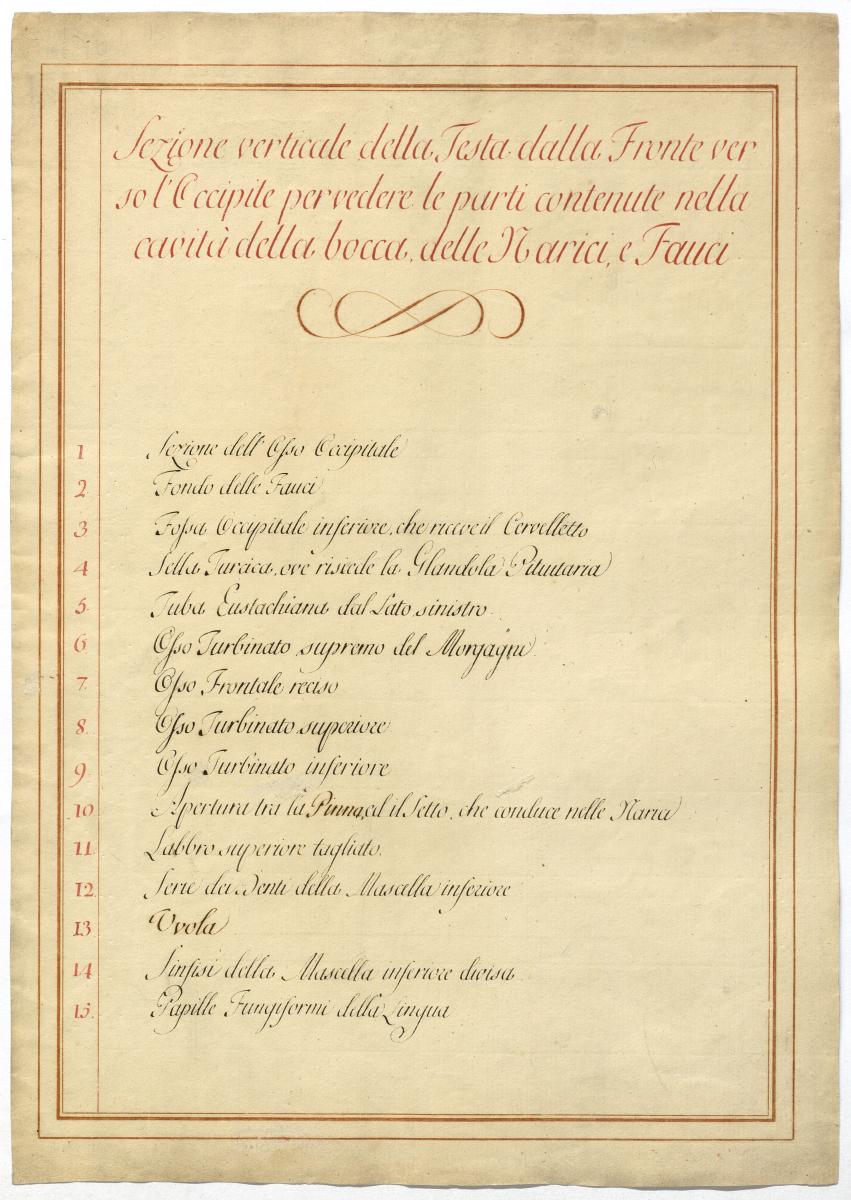 Sezione verticale della Testa dalla Fronte ver
so l'Occipite per vedere le parti contenute nella
cavità della bocca, delle Narici, e Fauci
1 Sezione dell' Osso Occipitale
2 Fondo delle Fauci
3 Fossa Occipitale inferiore, che riceve il Cervelletto
4 Sella Turcica, ove risiede la Glandola Pituitaria
5. Tuba Eustachiana dal Lato sinistro.
6 Osso Turbinato supremo del Morgagni
7 Osso Frontale reciso
8 Osso Turbinato superiore
9 Osso Turbinato inferiore
10 Apertura tra la Pinna, ed il Setto, che conduce nelle Narici
11 Labbro superiore tagliato.
12 Serie dei Denti della Mascella inferiore
13 Uvola
14 Sinfisi della Mascella inferiore divisa
15 Papille Fungiformi della Lingua